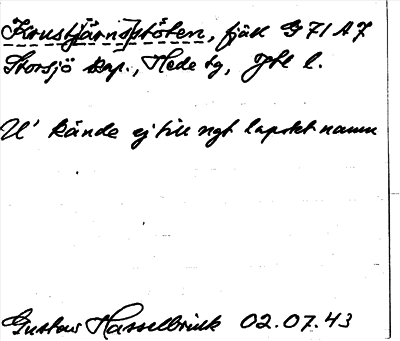 Krustjärnstöten, fjäll G 71 A 7
Storsjö kap., Hede tg, Jtl l.
U' kände ej till ngt lapskt namn
Gustav Hasselbrink 02.07.43